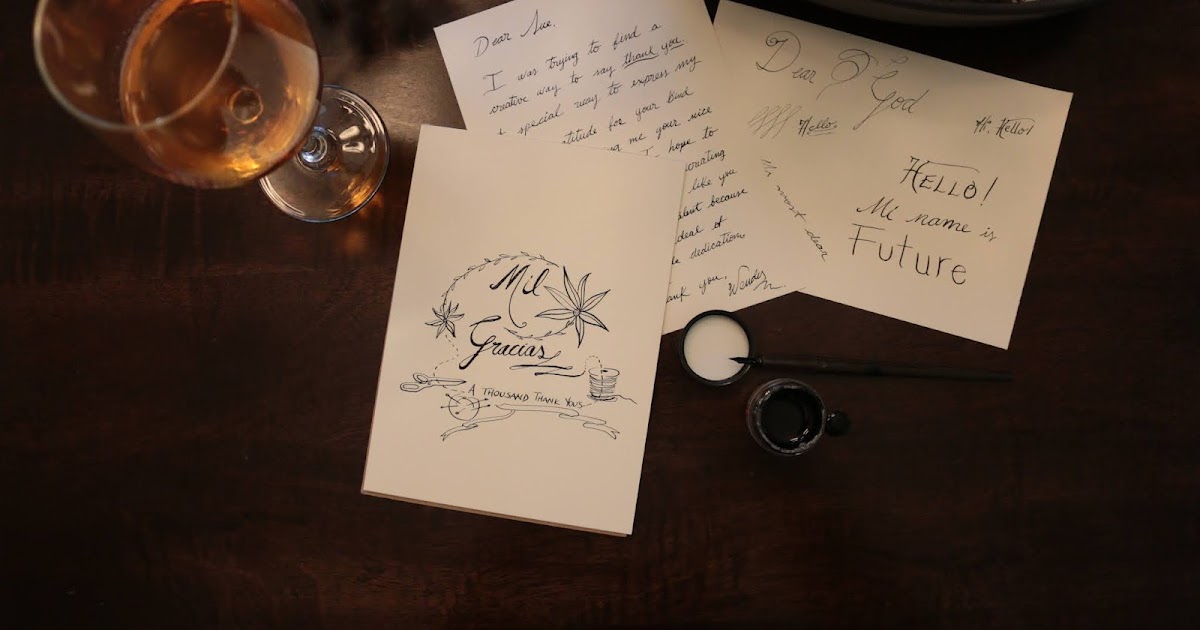 Dear Sue,
I was trying to find a
creative way to say thank you.
special way to express my
titude for your kind
me your nice
I hope to
like you
because
deal of
dedication.
ank you, Wendy
Dear God
Hello
Hi, Hello!
HELLO!
Mi name is
Future
most dear
Mil
Gracias
A THOUSAND THANK YOUS